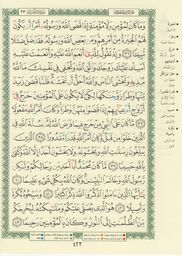 وَمَا كَانَ لِمُؤْمِنٍ وَلَا مُؤْمِنَةٍ إِذَا قَضَى ٱللَّهُ وَرَسُولُهُۥٓ أَمْرًا أَن يَكُونَ
لَهُمُ ٱلْخِيَرَةُ مِنْ أَمْرِهِمْ وَمَن يَعْصِ ٱللَّهَ وَرَسُولَهُۥ فَقَدْ ضَلَّ ضَلَٰلًا
مُّبِينًا ٣٦ وَإِذْ تَقُولُ لِلَّذِىٓ أَنْعَمَ ٱللَّهُ عَلَيْهِ وَأَنْعَمْتَ عَلَيْهِ
أَمْسِكْ عَلَيْكَ زَوْجَكَ وَٱتَّقِ ٱللَّهَ وَتُخْفِى فِى نَفْسِكَ مَا ٱللَّهُ
مُبْدِيهِ وَتَخْشَى ٱلنَّاسَ وَٱللَّهُ أَحَقُّ أَن تَخْشَىٰهُ فَلَمَّا قَضَىٰ زَيْدٌ
مِّنْهَا وَطَرًا زَوَّجْنَٰكَهَا لِكَىْ لَا يَكُونَ عَلَى ٱلْمُؤْمِنِينَ حَرَجٌ فِىٓ
أَزْوَٰجِ أَدْعِيَآئِهِمْ إِذَا قَضَوْا۟ مِنْهُنَّ وَطَرًا وَكَانَ أَمْرُ ٱللَّهِ مَفْعُولًا ٣٧
مَّا كَانَ عَلَى ٱلنَّبِىِّ مِنْ حَرَجٍ فِيمَا فَرَضَ ٱللَّهُ لَهُۥ سُنَّةَ ٱللَّهِ فِى
ٱلَّذِينَ خَلَوْا۟ مِن قَبْلُ وَكَانَ أَمْرُ ٱللَّهِ قَدَرًا مَّقْدُورًا ٣٨ ٱلَّذِينَ
يُبَلِّغُونَ رِسَٰلَٰتِ ٱللَّهِ وَيَخْشَوْنَهُۥ وَلَا يَخْشَوْنَ أَحَدًا إِلَّا ٱللَّهَ وَكَفَىٰ
بِٱللَّهِ حَسِيبًا ٣٩ مَّا كَانَ مُحَمَّدٌ أَبَآ أَحَدٍ مِّن رِّجَالِكُمْ وَلَٰكِن
رَّسُولَ ٱللَّهِ وَخَاتَمَ ٱلنَّبِيِّۦنَ وَكَانَ ٱللَّهُ بِكُلِّ شَىْءٍ عَلِيمًا ٤٠
يَٰٓأَيُّهَا ٱلَّذِينَ ءَامَنُوا۟ ٱذْكُرُوا۟ ٱللَّهَ ذِكْرًا كَثِيرًا ٤١ وَسَبِّحُوهُ بُكْرَةً
وَأَصِيلًا ٤٢ هُوَ ٱلَّذِى يُصَلِّى عَلَيْكُمْ وَمَلَٰٓئِكَتُهُۥ لِيُخْرِجَكُم
مِّنَ ٱلظُّلُمَٰتِ إِلَى ٱلنُّورِ وَكَانَ بِٱلْمُؤْمِنِينَ رَحِيمًا ٤٣
٤٢٣